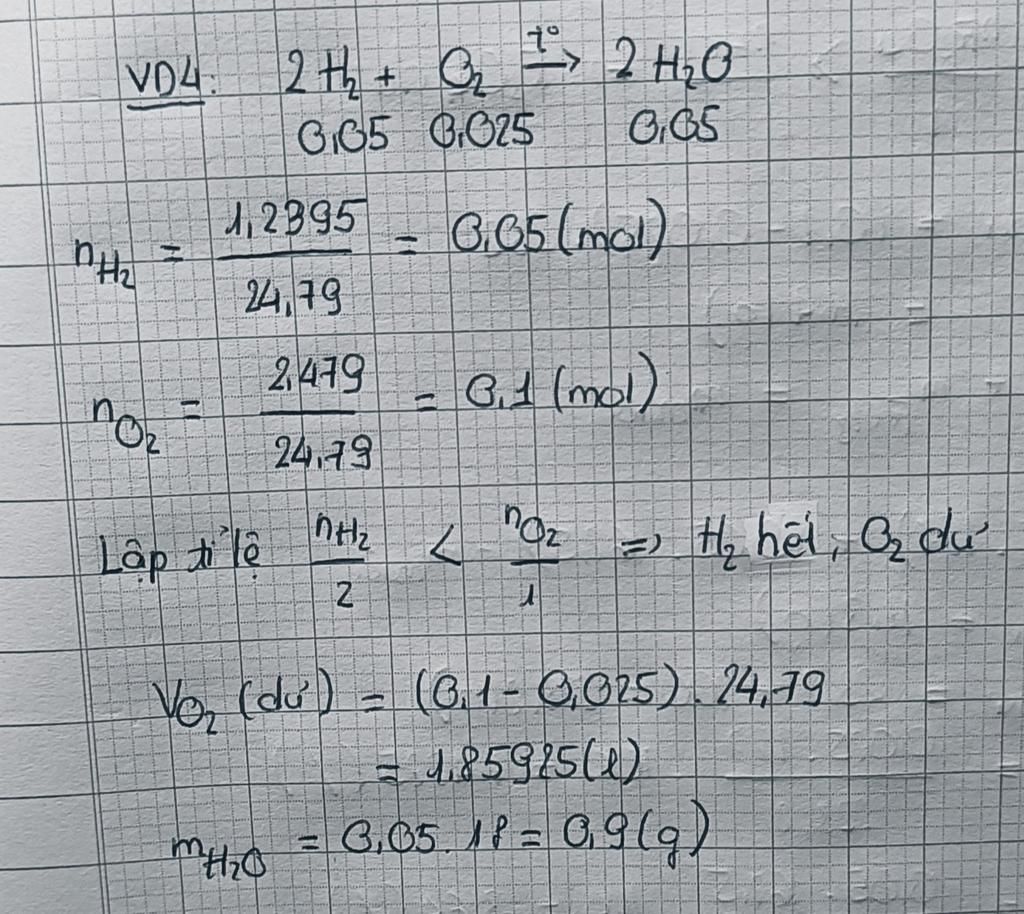 VD4: 2 H₂ + O₂ →(t°) 2 H₂O
0,05 0,025 0,05
n_H₂ = 1,2395 / 24,79 = 0,05 (mol)
n_O₂ = 2,479 / 24,79 = 0,1 (mol)
Lập tỉ lệ n_H₂ / 2 < n_O₂ / 1 => H₂ hết, O₂ dư
V_O₂ (dư) = (0,1 - 0,025) . 24,79
= 1,85925 (l)
m_H₂O = 0,05 . 18 = 0,9 (g)